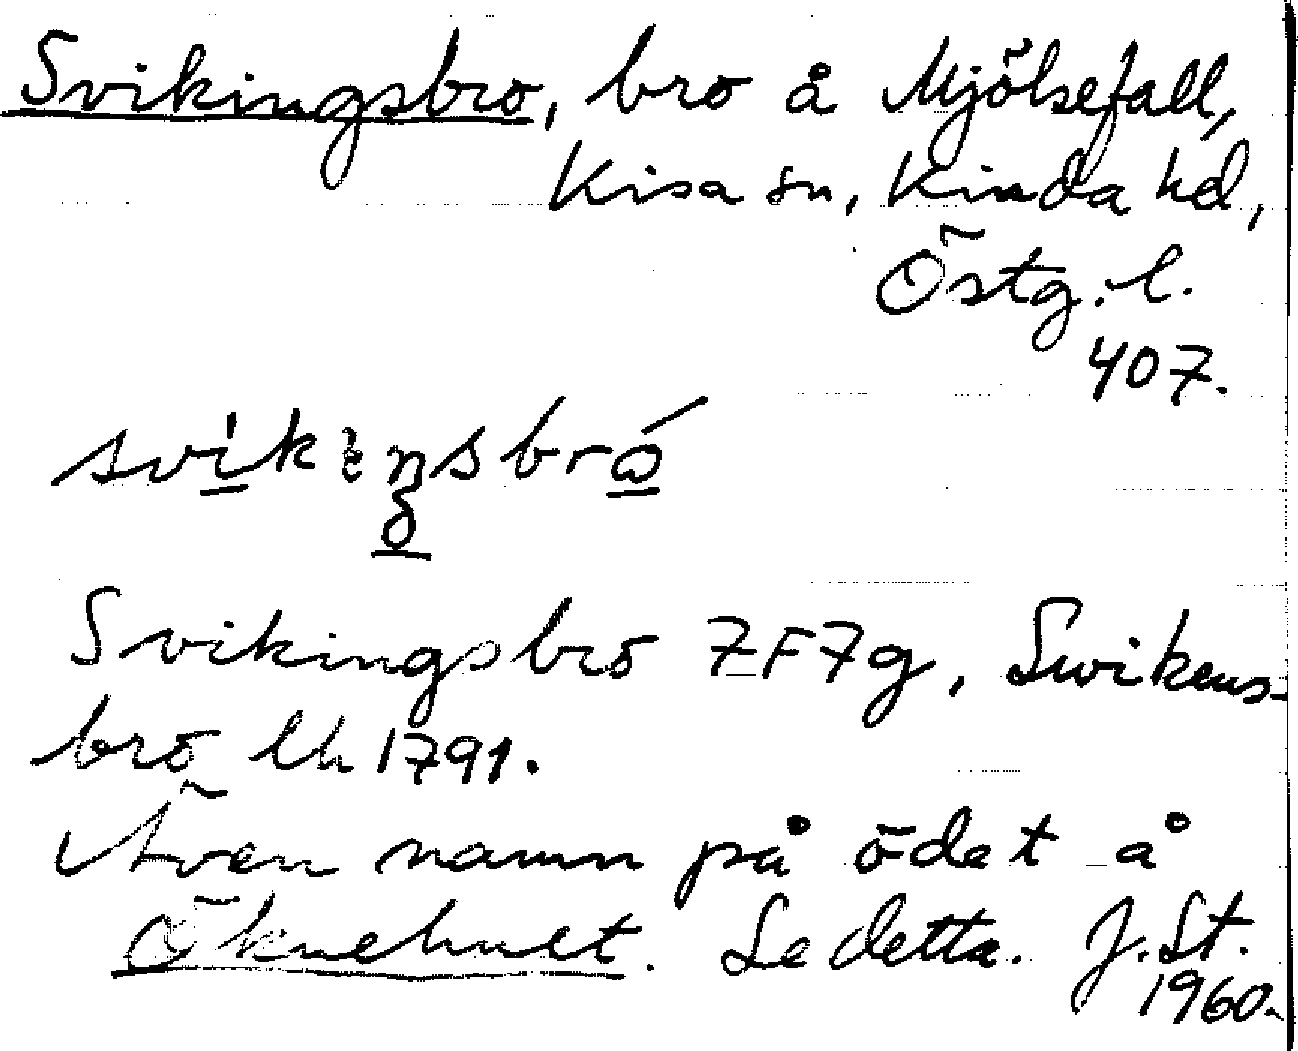 Svikingsbro, bro å Mjölsefall,
Kisa sn, Kinda hd,
Östg. l.
407.
Svikingsbro 7F7g, Swikens-
bro lh 1791.
Även namn på ödet å
Öknehult. Se detta. J. St.
1960.